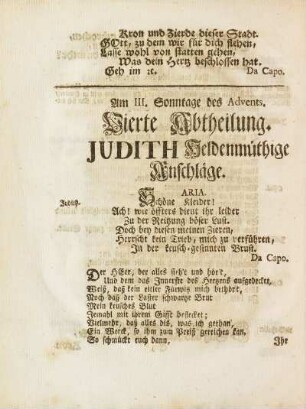 Kron und Zierde dieser Stadt.
GOtt, zu dem wir für dich flehen,
Lasse wohl von statten gehen,
Was dein Hertz beschlossen hat.
Geh im ꝛc. Da Capo.
Am III. Sonntage des Advents.
Vierte Abtheilung.
JUDITH Heldenmüthige
Anschläge.
ARIA.
Judith. Schöne Kleider!
Ach! wie öffters dient ihr leider
Zu der Reitzung böser Lust.
Doch bey diesen meinen Zieren,
Herrscht kein Trieb, mich zu verführen,
In der keusch-gesinnten Brust.
Da Capo.
Der HErr, der alles sieh't und hör't,
Und dem das Innerste des Hertzens aufgedecket,
Weiß, daß kein eitler Fürwitz mich bethört,
Noch daß der Laster schwartze Brut
Mein keusches Blut
Jemahl mit ihrem Gifft beflecket;
Vielmehr, daß alles diß, was ich gethan,
Ein Werck, so ihm zum Preiß gereichen kan.
So schmückt euch dann, Ihr